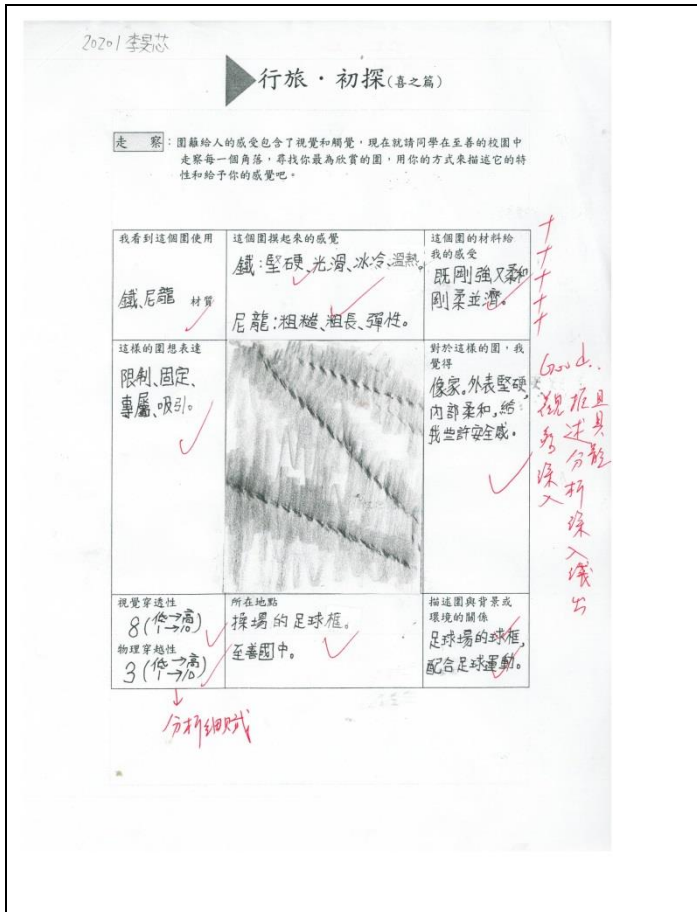 20201 李旻芯
行旅・初探(喜之篇)
走 察:圍籬給人的感受包含了視覺和觸覺,現在就請同學在至善的校園中
走察每一個角落,尋找你最為欣賞的圍,用你的方式來描述它的特
性和給予你的感覺吧。
我看到這個圍使用
鐵、尼龍 材質
這個圍摸起來的感覺
鐵:堅硬、光滑、冰冷、溫熱。
尼龍:粗糙、粗長、彈性。
這個圍的材料給
我的感受
既剛強又柔和
剛柔並濟。
+
+
+
+
+
這樣的圍想表達
限制、固定、
專屬、吸引。
對於這樣的圍,我
覺得
像家。外表堅硬,
內部柔和,給
我些許安全感。
Good.
觀察深入
描述分析深入淺出
且具體
視覺穿透性
8(低→高
1→10)
物理穿越性
3(低→高
1→10)
分析細膩
所在地點
操場的足球框。
至善國中。
描述圍與背景或
環境的關係
足球場的球框,
配合足球運動。